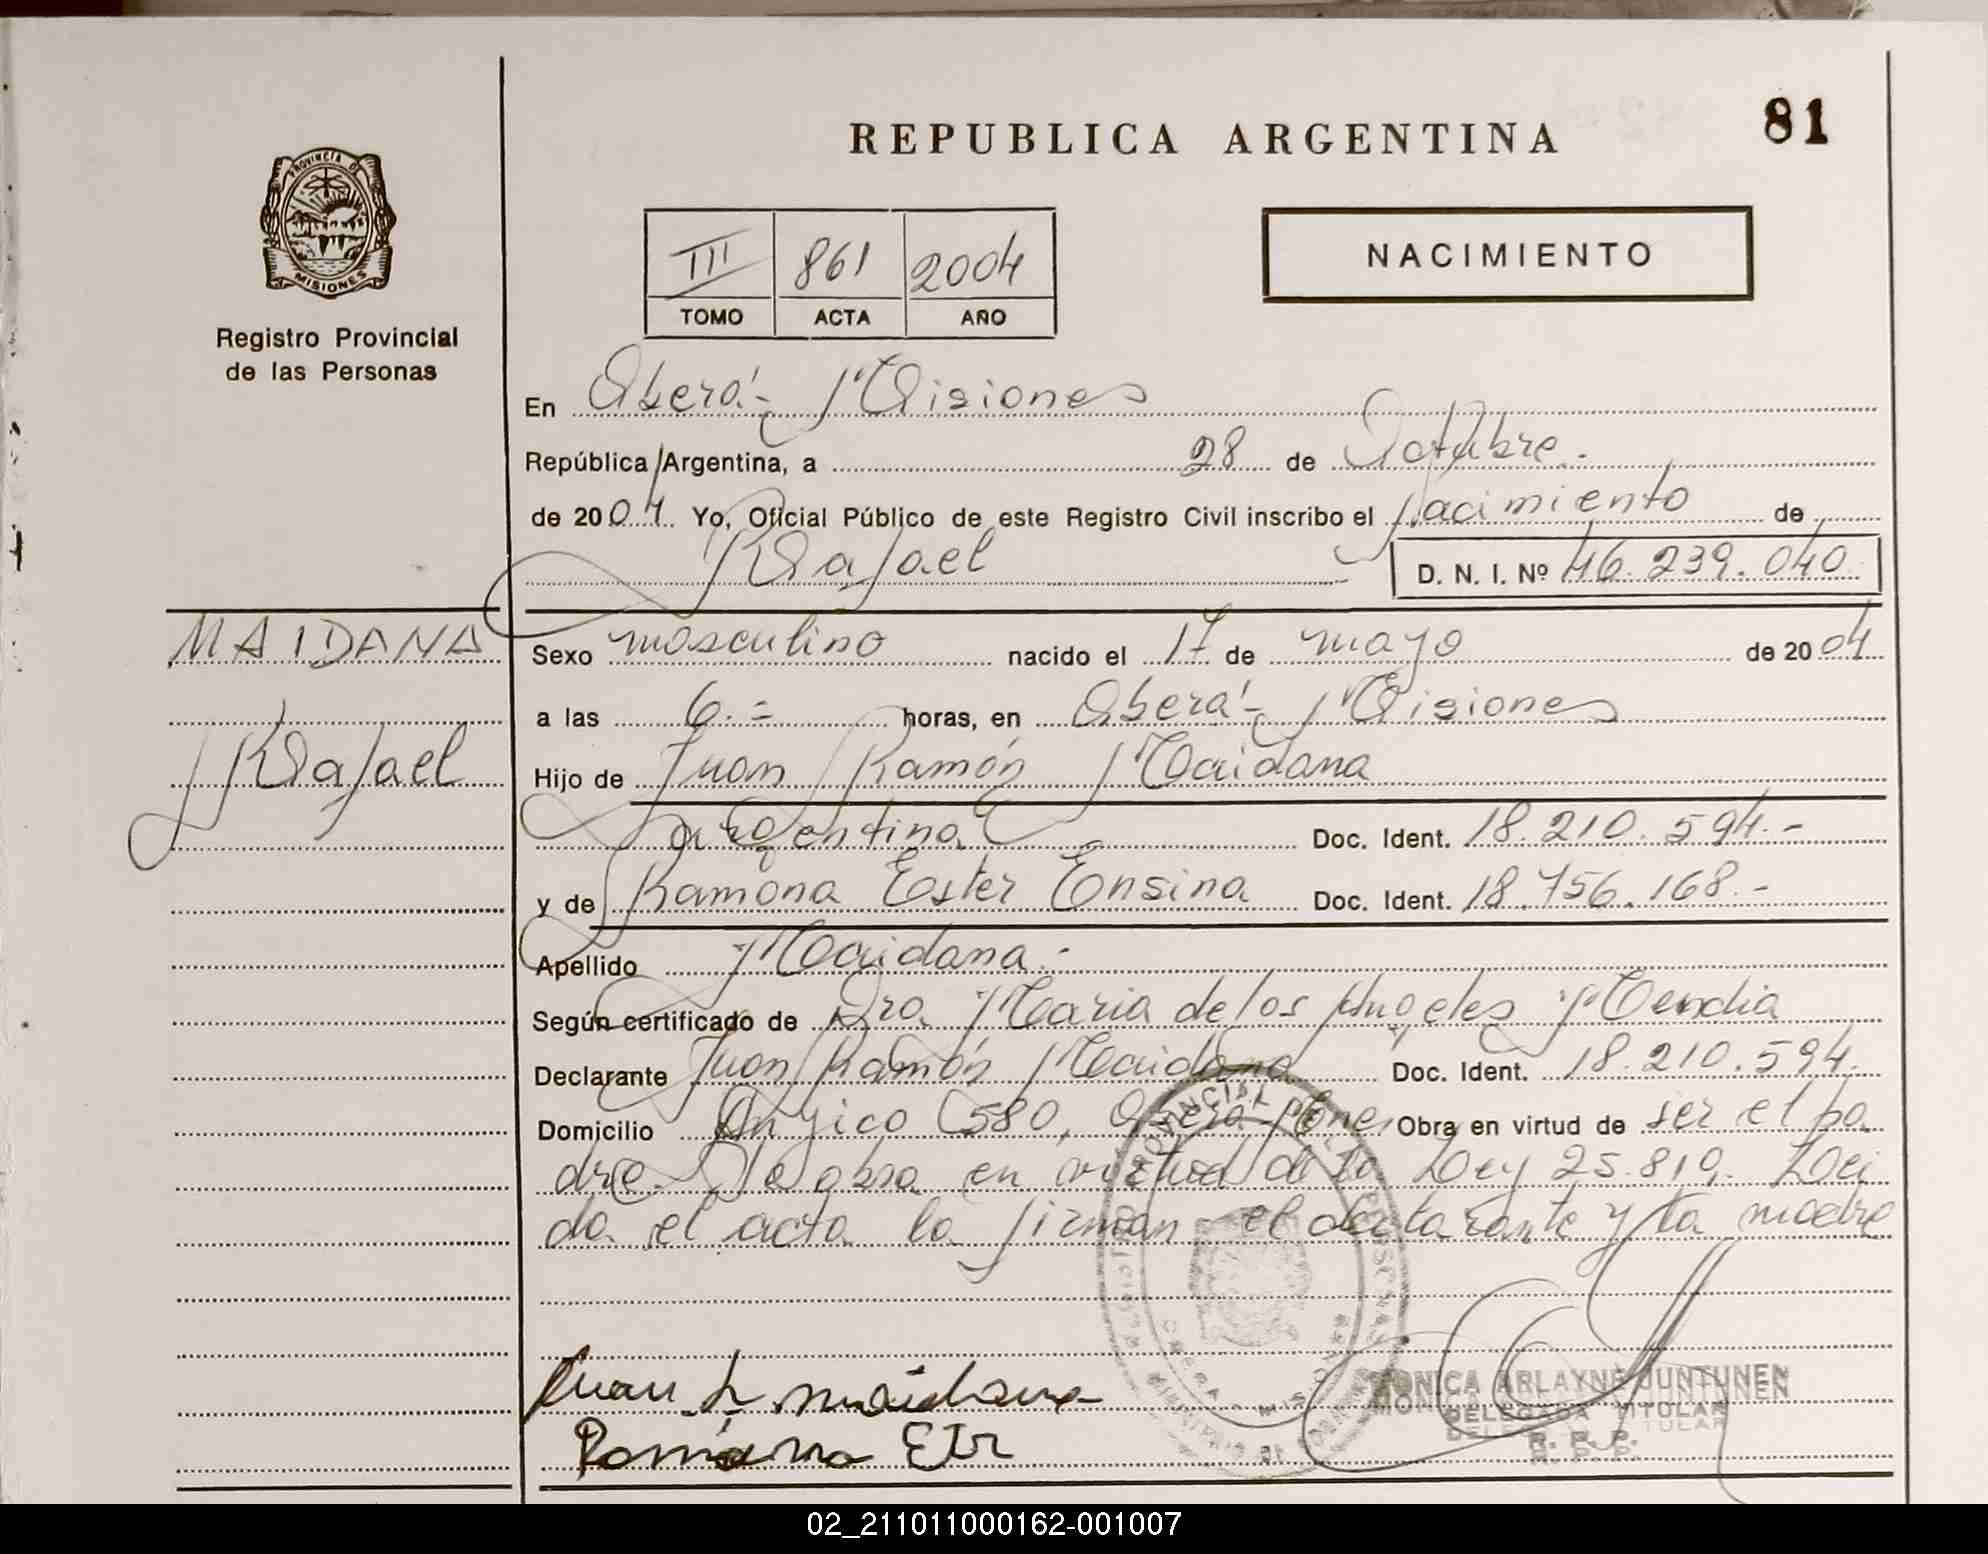 81
REPUBLICA ARGENTINA
PROVINCIA DE
MISIONES
Registro Provincial
de las Personas
III 861 2004
TOMO ACTA AÑO
NACIMIENTO
En Oberá - Misiones
República Argentina, a 28 de Octubre.
de 2004. Yo, Oficial Público de este Registro Civil inscribo el Nacimiento de
Rafael D. N. I. Nº 46.239.040
MAIDANA
Rafael
Sexo masculino nacido el 17 de mayo de 2004
a las 6.= horas, en Oberá - Misiones
Hijo de Juan Ramón Maidana
argentina Doc. Ident. 18.210.594.-
y de Ramona Ester Ensina Doc. Ident. 18.756.168.-
Apellido Maidana.-
Según certificado de Dra Maria de los Angeles Mendia
Declarante Juan Ramón Maidana Doc. Ident. 18.210.594.
Domicilio C 580, Oberá Mnes Obra en virtud de ser el pa
dre. Se obra en virtud de la Ley 25.819. Lei
da el acta la firman el declarante y la madre
Juan R maidana
Ramona
MONICA ARLAYNE JUNTUNEN
DELEGADA TITULAR
R. P. P.
02_211011000162-001007